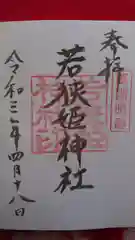 奉拝
若狭姫神社
令和三年四月十八日